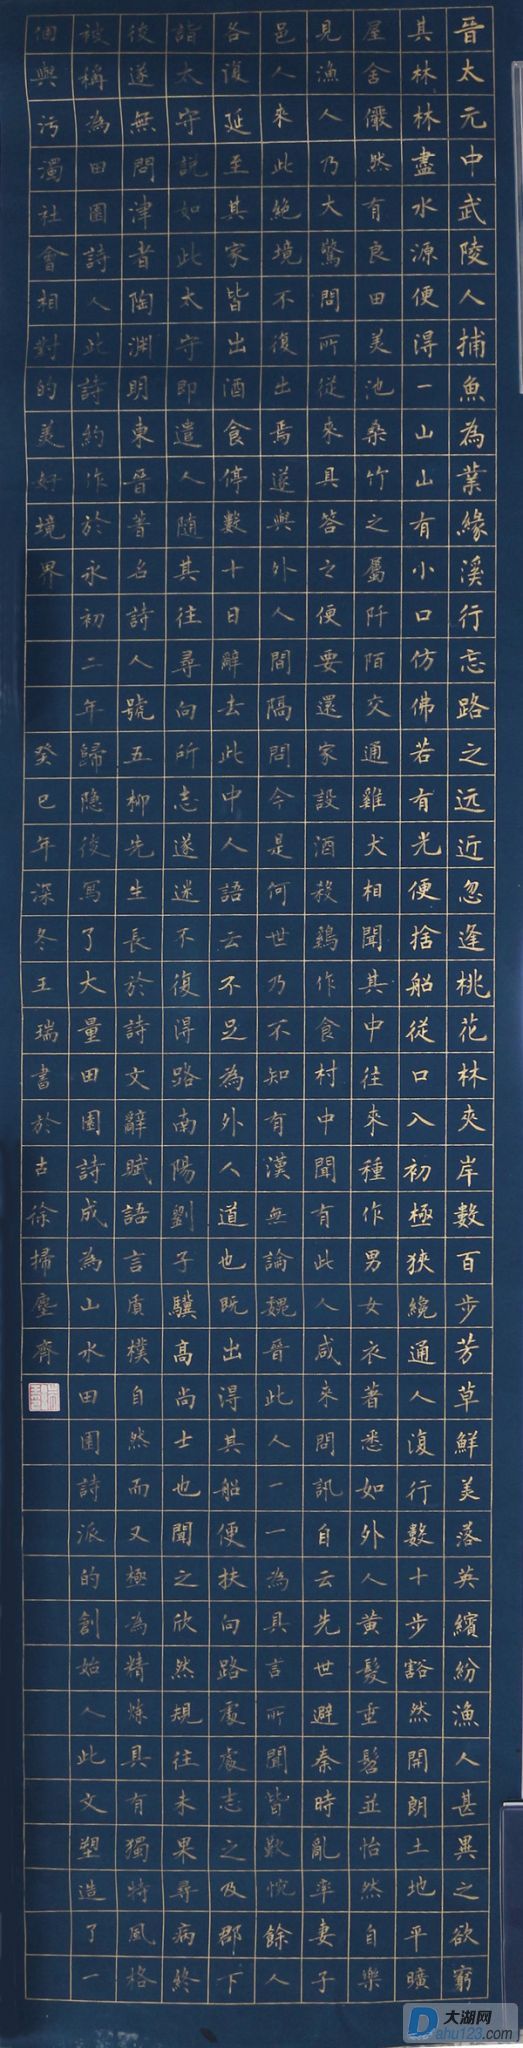 晉太元中武陵人捕魚為業緣溪行忘路之远近忽逢桃花林夾岸數百步芳草鮮美落英繽紛漁人甚異之欲窮
其林林盡水源便得一山山有小口仿佛若有光便捨船從口入初極狹纔通人復行數十步豁然開朗土地平曠
屋舍儼然有良田美池桑竹之屬阡陌交通雞犬相聞其中往來種作男女衣著悉如外人黃髮垂髫並怡然自樂
見漁人乃大驚問所從來具答之便要還家設酒殺鷄作食村中聞有此人咸來問訊自云先世避秦時亂率妻子
邑人來此絕境不復出焉遂與外人間隔問今是何世乃不知有漢無論魏晉此人一一為具言所聞皆歎惋餘人
各復延至其家皆出酒食停數十日辭去此中人語云不足為外人道也既出得其船便扶向路處處志之及郡下
詣太守說如此太守即遣人隨其往尋向所志遂迷不復得路南陽劉子驥高尚士也聞之欣然規往未果尋病終
後遂無問津者陶淵明東晉著名詩人號五柳先生長於詩文辭賦語言質樸自然而又極為精煉具有獨特風格
被稱為田園詩人此詩約作於永初二年歸隱後寫了大量田園詩成為山水田園詩派的創始人此文塑造了一
個與污濁社會相對的美好境界 癸巳年深冬王瑞書於古徐掃塵齋
大湖网
Dahu123.com